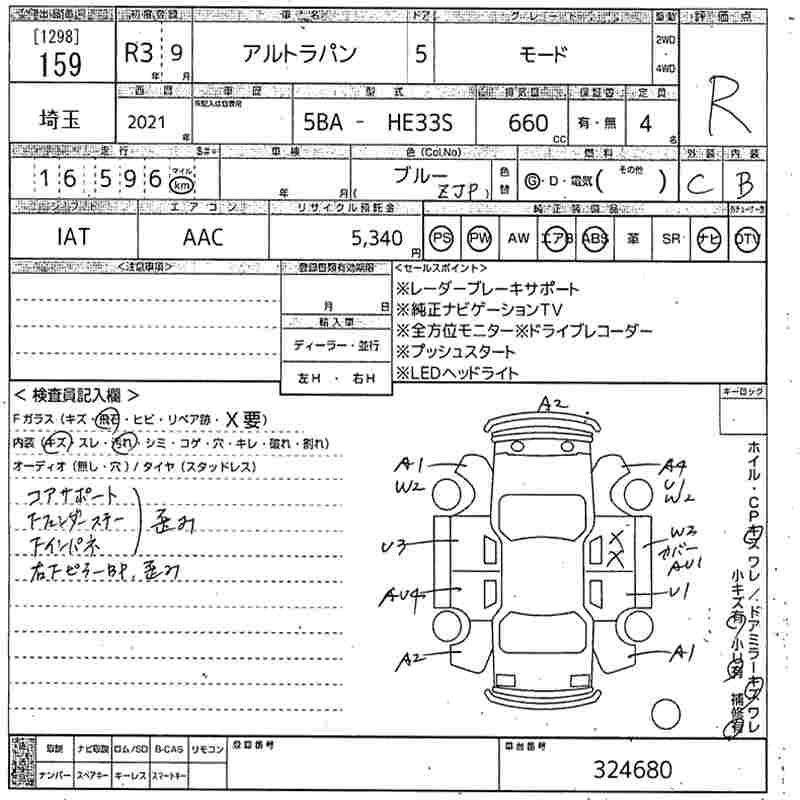 初度登録 車名 ドア グレード 駆動 評価点
[1298]
159
R3年 9月 アルトラパン 5 モード 2WD・4WD R
西暦 車歴 型式 排気量 保証書 定員
埼玉 2021年 5BA - HE33S 660CC 有・無 4名
走行 車検 色(Col.No) 燃料 外装 内装
16596 マイル km 年 月 ブルー (ZJP) 色替 G・D・電気( その他 ) C B
シフト エアコン リサイクル預託金 純正装備品
IAT AAC 5,340円 PS PW AW エアB ABS 革 SR ナビ DTV
<注意事項> 登録書類有効期限 <セールスポイント>
月 日
※レーダーブレーキサポート
※純正ナビゲーションTV
輸入車
※全方位モニター※ドライブレコーダー
ディーラー・並行
※プッシュスタート
左H・右H
※LEDヘッドライト
<検査員記入欄> キーロック
Fガラス (キズ・飛石・ヒビ・リペア跡・X要)
内装 (キズ・スレ・汚れ・シミ・コゲ・穴・キレ・破れ・割れ)
オーディオ (無し・穴) / タイヤ (スタッドレス)
コアサポート
下フェンダーステー
下インパネ
歪み
右下ピラーBP、歪み
A2
A1
W2
A4
U1
W2
U3
W3
カバー
AU1
X
X
AU4
U1
A2
A1
ホイル・CPキズワレ/ドアミラーキズワレ
小キズ有 小U有 補修有
取説 ナビ取説 ロム/SD B-CAS リモコン 登録番号 車台番号
ナンバー スペアキー キーレス スマートキー
324680